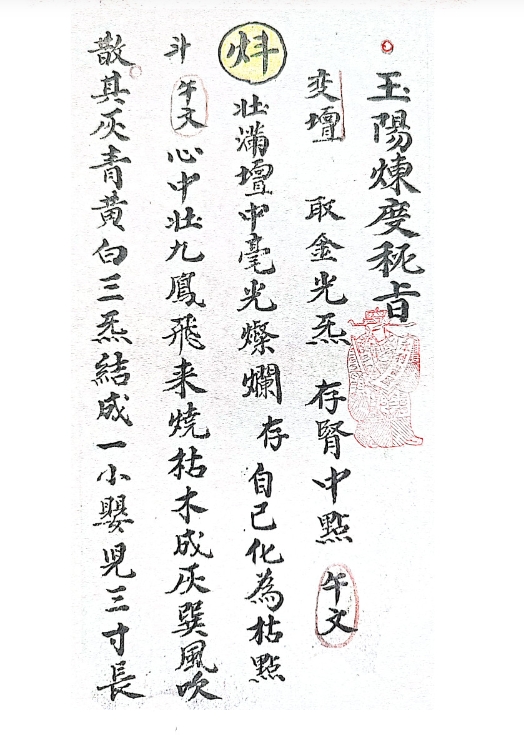 玉陽煉度秘旨
变壇 取金光炁 存腎中點 午文
炓 壯滿壇中毫光燦爛 存 自己化為枯點
斗 午文 心中壯九鳳飛来燒枯木成灰巽風吹
散其灰青黄白三炁結成一小嬰児三寸長